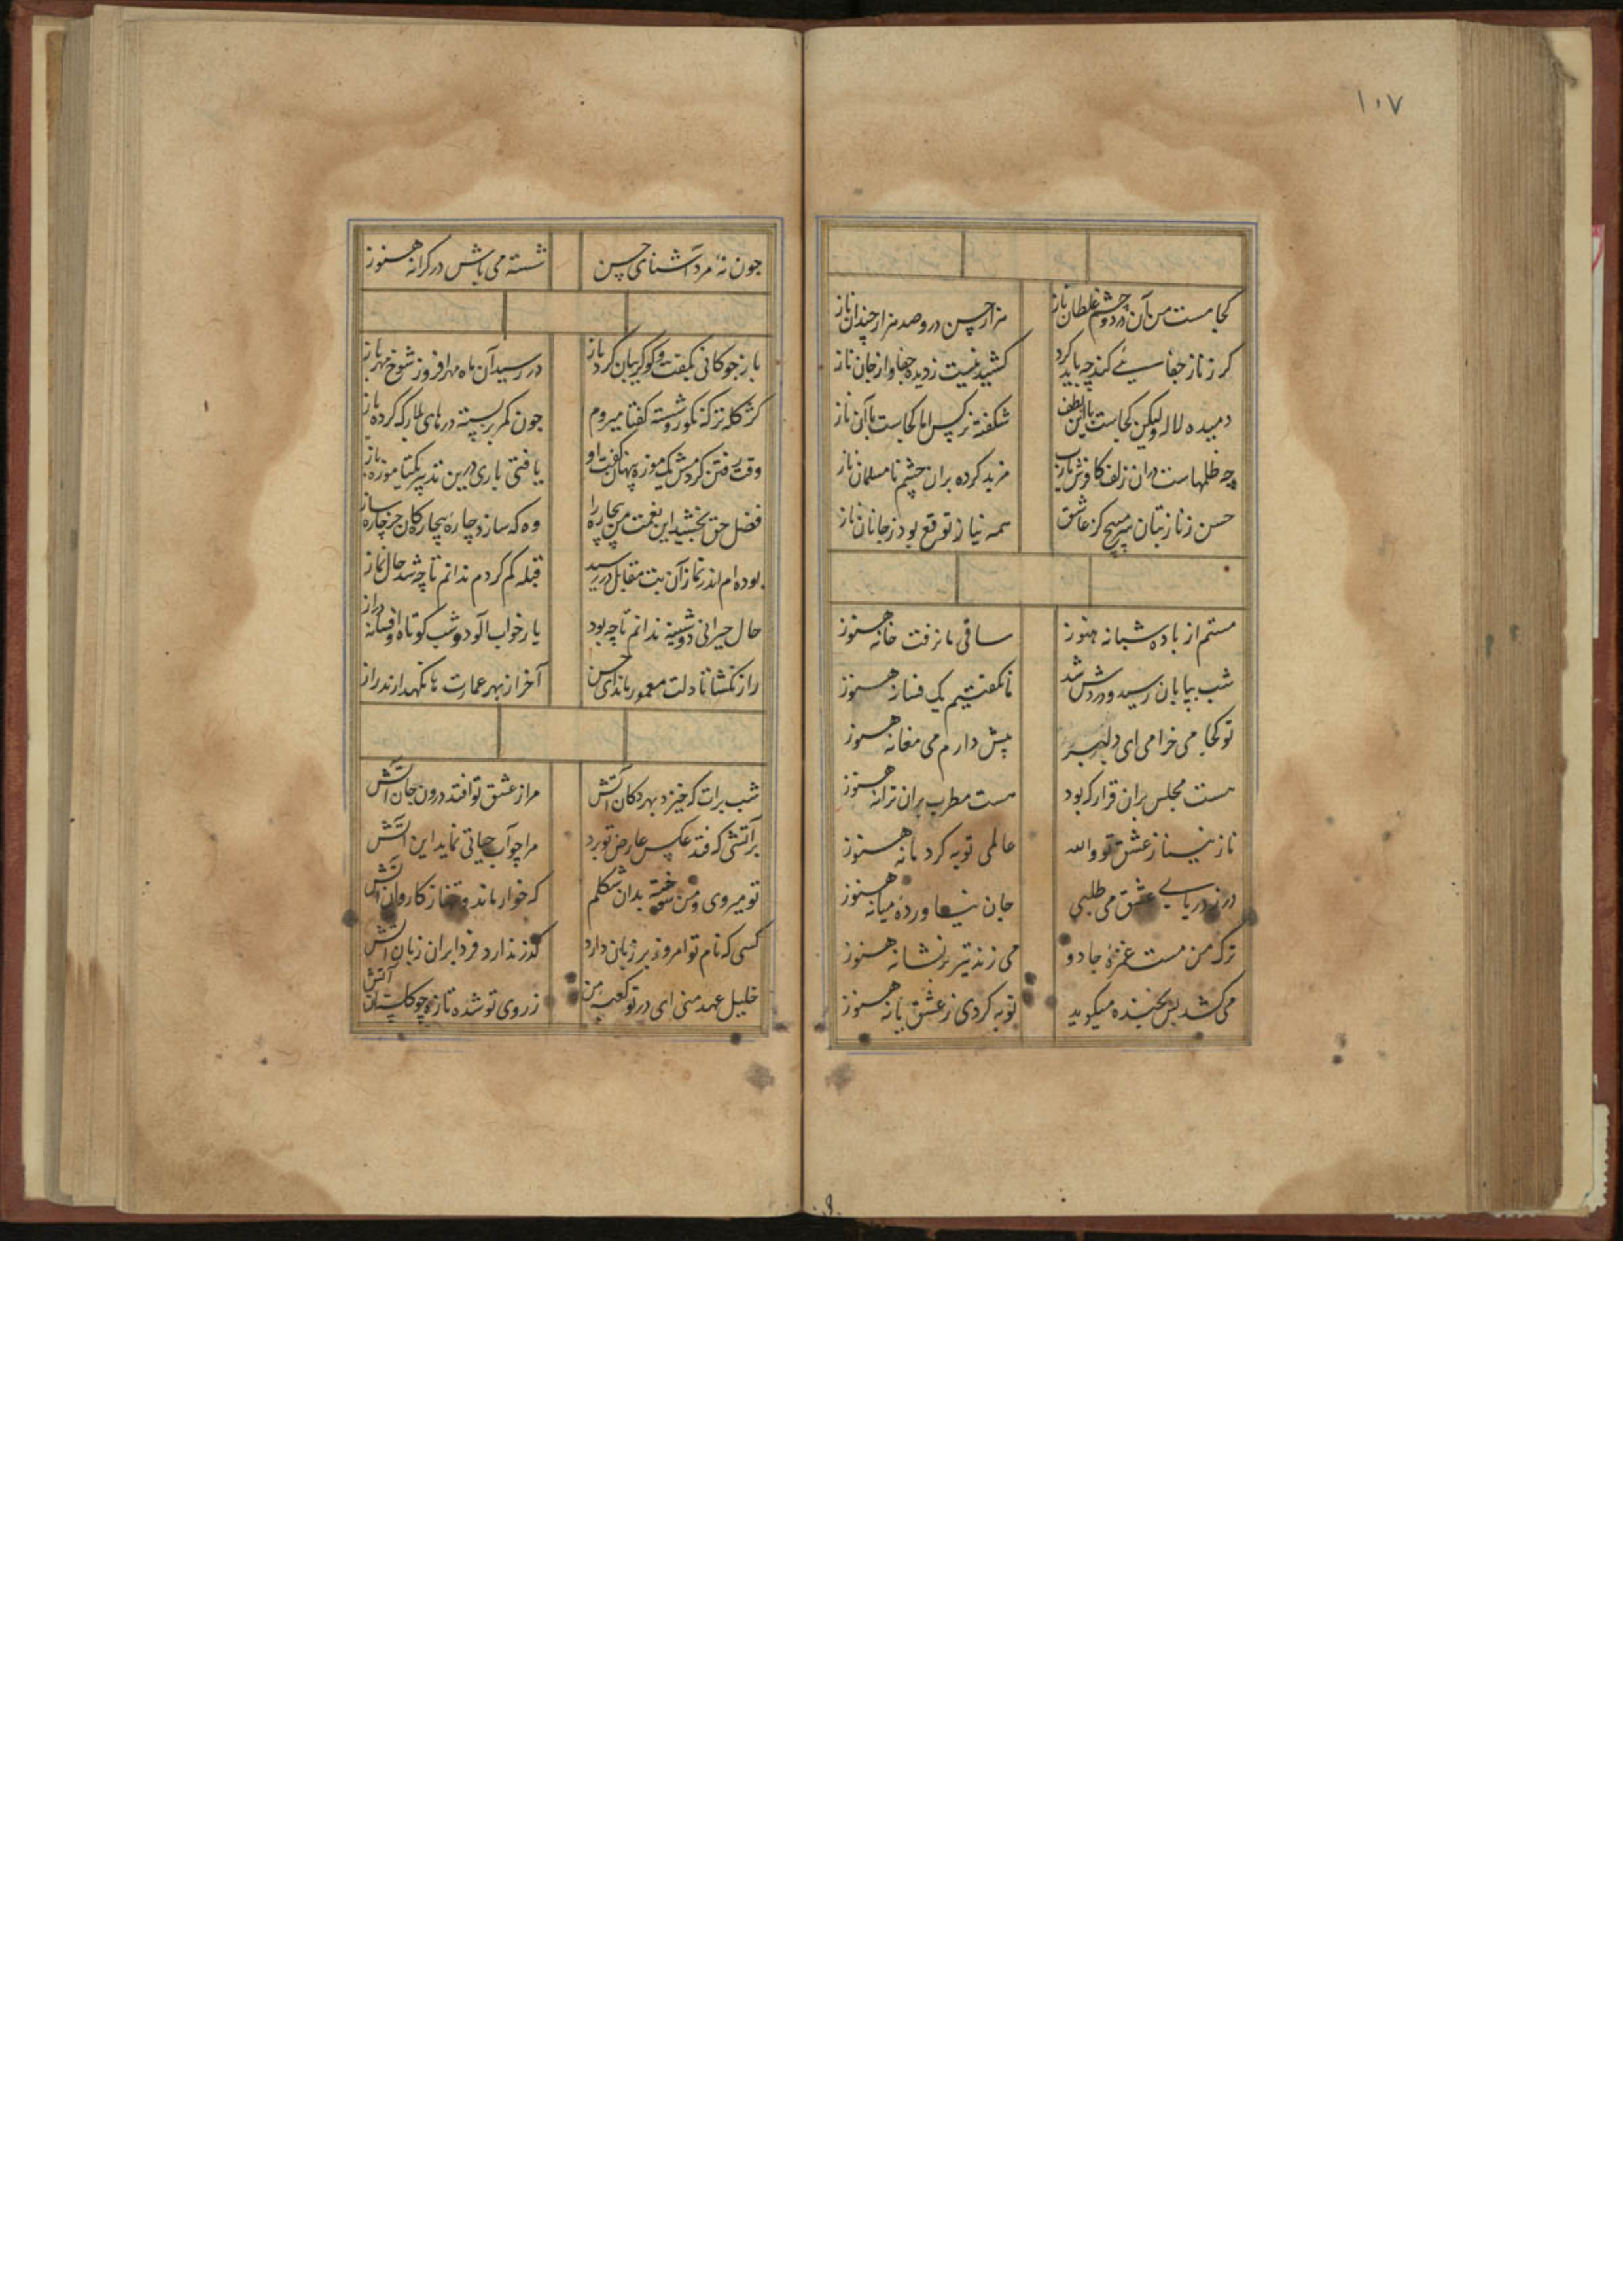 ۱۰۷
کجا مست من آن در دو چشم غلطان ناز هزار حسن درو صد هزار چندان ناز
کر ز ناز جفا سیئے کند چه باید کرد کشیدنیست ز دیده جفا و از جان ناز
دمیده لاله ولیکن کجاست با این لطف شکفته نرکس اما کجاست با آن ناز
چه ظلمهاست دران زلف کافرش یارب مزید کرده بران چشم نامسلمان ناز
حسن ز ناز بتان سر مپیچ کز عاشق همه نیاز توقع بود ز جانان ناز
مستم از باده شبانه هنوز ساقی ما نرفت خانه هنوز
شب بپایان رسید و در دش شد نا نکفتیم یک فسانه هنوز
تو کجا می خرامی ای دلبر پیش دارم می مغانه هنوز
هست مجلس بران قرار که بود هست مطرب بران ترانه هنوز
نازنینا ز عشق تو والله عالمی توبه کرد مانه هنوز
در ز دریای عشق می طلبی جان نیاورده میانه هنوز
ترک من مست غمزهٔ جادو می زند تیر بر نشانه هنوز
می کشد پس بخنده میکوید توبه کردی ز عشق یا نه هنوز
جون نهٔ مرد آشنای حسن شسته می باش در کرانه هنوز
باز جو کانی بکفت و کوکریبان کرد باز در رسید آن ماه مهر افروز شوخ مهر باز
کژ کله ترکانه کور و شسته کفتا میروم جون کمر بربسته درهای بلا رکه کرده باز
وقت رفتن کردمش یک موزه پنهان کفت او یافتی باری درین تدبیر یکتا موزه باز
فضل حق بخشید این نعمت من بیچاره را وه که سازد چارهٔ بیچارکان جز چاره ساز
بوده ام اندر نماز آن بت مقابل در رسید قبله کم کردم ندانم تا چه شد حال نماز
حال حیرانی دوشینه ندانم تا چه بود یار خواب آلود و شب کوتاه و افسانه دراز
راز نکشا تا دلت معمور ماند ای حسن آخر از بهر عمارت تا نکهدارند راز
شب برات که خیزد بهر دکان آتش مرا ز عشق تو افتد درون جان آتش
بر آتشی که فتد عکس عارض تو برد مرا چو آب حیاتی نماید این آتش
تو میروی و من سوخته بدان شکلم که خوار ماند وقت از کاروان آتش
کسی که نام تو امروز بر زبان دارد کذر ندارد فردا بران زبان آتش
خلیل عهد منی ای در تو کعبه من ز روی تو شده تازه چو کلستان آتش